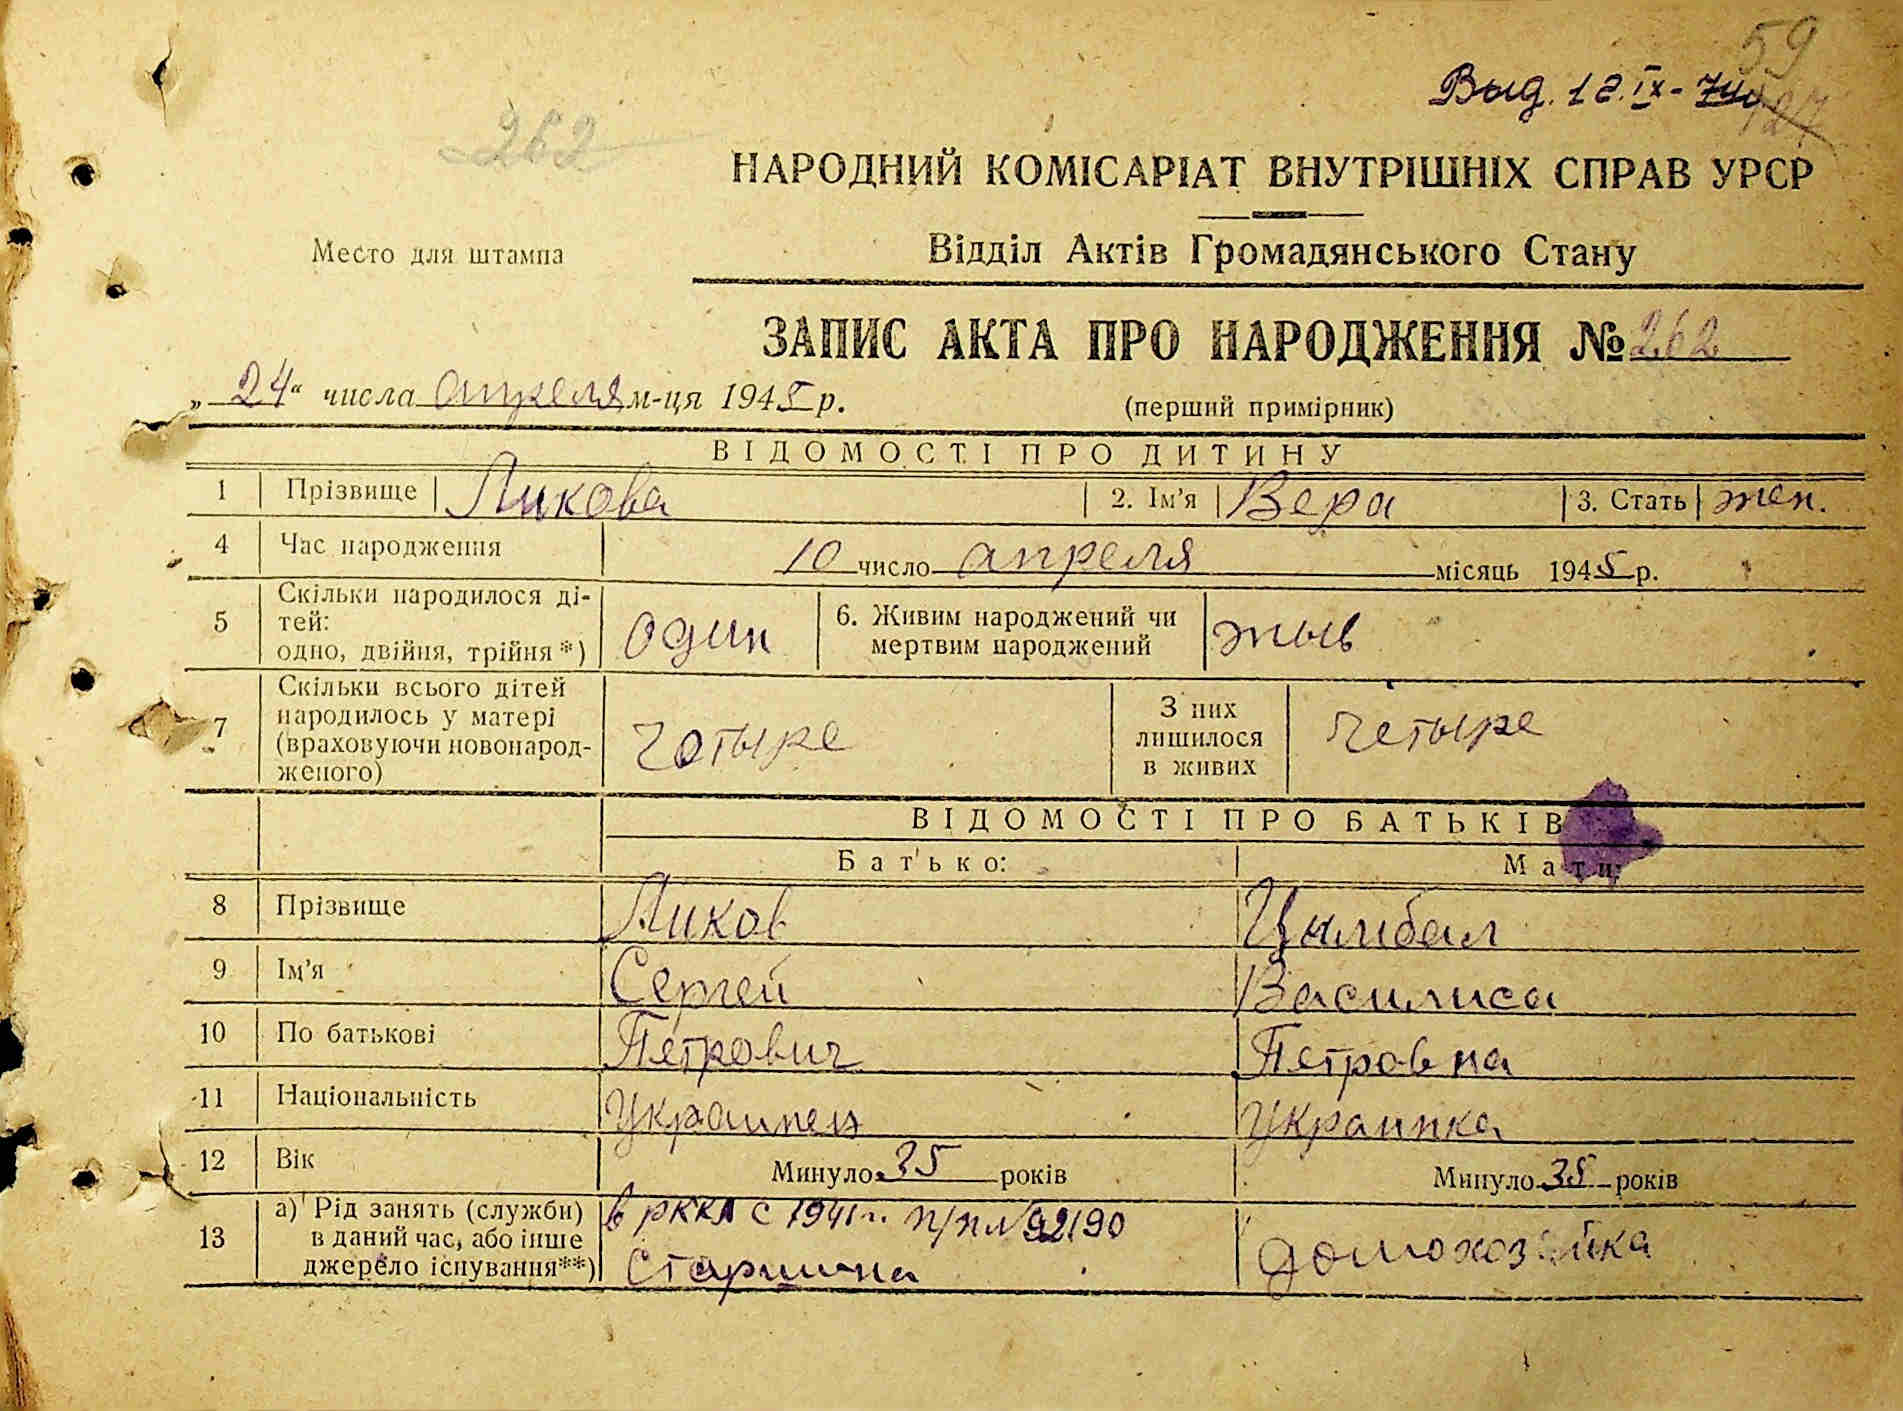 59
Выд. 12.IX-74
127
262
НАРОДНИЙ КОМІСАРІАТ ВНУТРІШНІХ СПРАВ УРСР
Место для штампа
Відділ Актів Громадянського Стану
ЗАПИС АКТА ПРО НАРОДЖЕННЯ № 262
„24“ числа апреля м-ця 1945 р.
(перший примірник)
ВІДОМОСТІ ПРО ДИТИНУ
1 Прізвище Ликова 2. Ім’я Вера 3. Стать жен.
4 Час народження 10 число апреля місяць 1945 р.
5 Скільки народилося ді-
тей:
одно, двійня, трійня *) один 6. Живим народжений чи
мертвим народжений жыв
7 Скільки всього дітей
народилось у матері
(враховуючи новонарод-
женого) чотыре З них
лишилося
в живих четыре
ВІДОМОСТІ ПРО БАТЬКІВ
Батько: Мати:
8 Прізвище Ликов Цымбал
9 Ім’я Сергей Василиса
10 По батькові Петрович Петровна
11 Національність Украинец Украинка
12 Вік Минуло 35 років Минуло 35 років
13 а) Рід занять (служби)
в даний час, або інше
джерело існування**) в РККА с 1941 г. п/п № 92190
Старшина домохозяйка